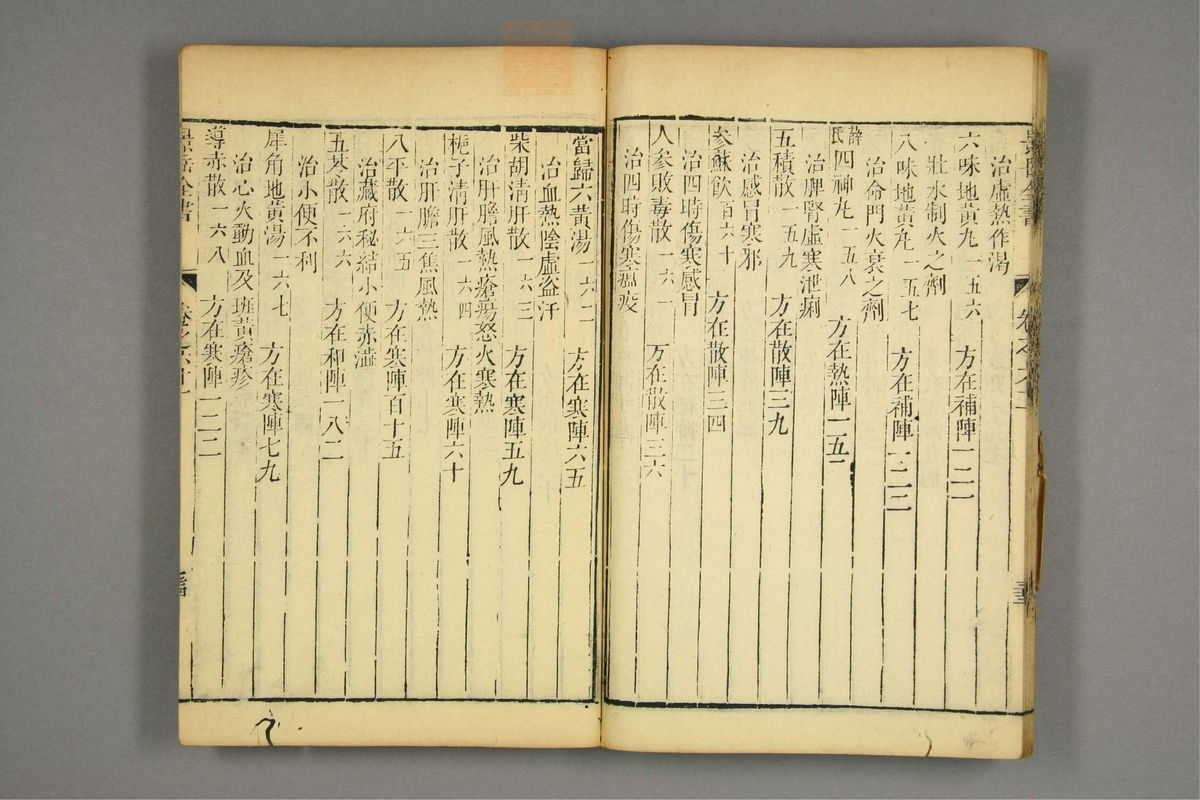 治虛熱作渴
六味地黄丸一五六 方在補陣一二一
壯水制火之劑
八味地黄丸一五七 方在補陣一二二
治命門火衰之劑
薛氏四神丸一五八 方在熱陣一五二
治脾腎虛寒泄痢
五積散一五九 方在散陣三九
治感冒寒邪
參蘇飲百六十 方在散陣三四
治四時傷寒感冒
人參敗毒散一六一 方在散陣三六
治四時傷寒瘟疫
當歸六黄湯一六二 方在寒陣六五
治血熱陰虛盜汗
柴胡清肝散一六三 方在寒陣五九
治肝膽風熱瘡瘍怒火寒熱
梔子清肝散一六四 方在寒陣六十
治肝膽三焦風熱
八平散一六五 方在寒陣百十五
治藏府秘結小便赤澁
五苓散一六六 方在和陣一八二
治小便不利
犀角地黄湯一六七 方在寒陣七九
治心火動血及斑黄瘡疹
導赤散一六八 方在寒陣一二二
景岳全書